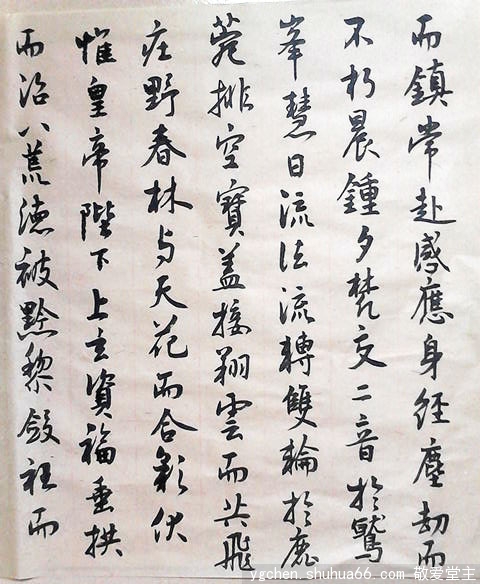 而鎮常赴感應身經塵劫而
不朽晨鍾夕梵交二音於鷲
峯慧日流法流轉雙輪於鹿
菀排空寶蓋接翔雲而共飛
庄野春林与天花而合彩伏
惟皇帝陛下上玄資福垂拱
而治八荒德被黔黎斂衽而
ygchen.shuhua66.com 敬爱堂主